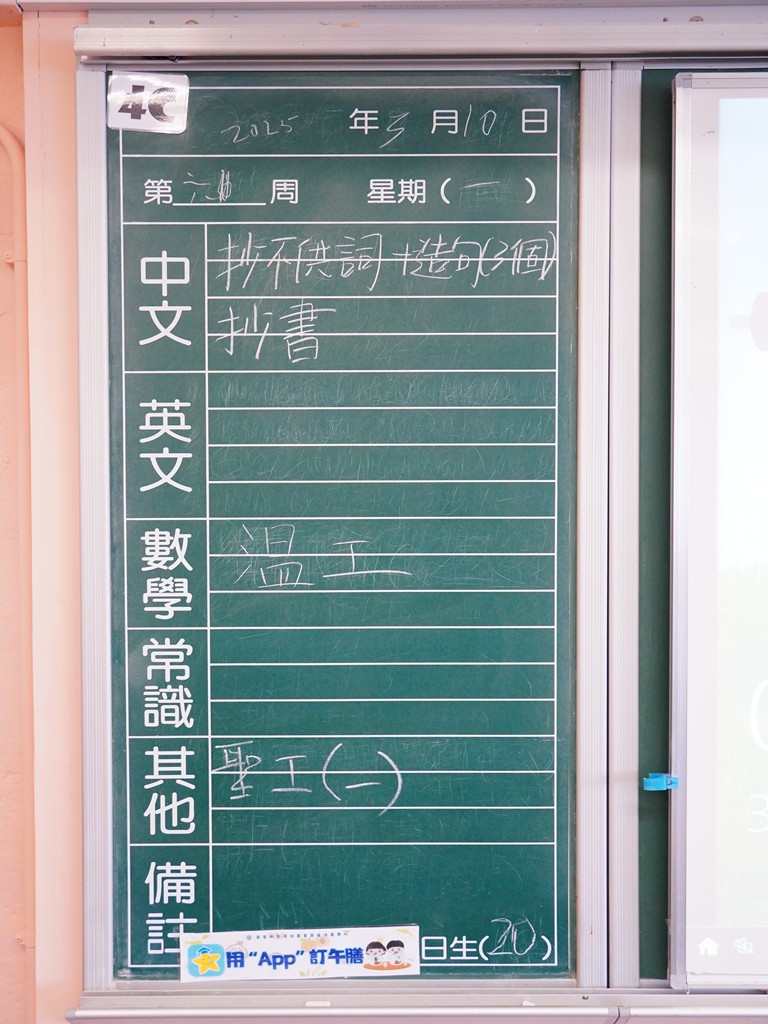 4C
2025 年 3 月 10 日
第 六 周 星期 ( 一 )
中文
抄不供詞 +造句(3個)
抄書
英文
數學
溫工
常識
其他
聖工(一)
備註
用 “App” 訂午膳
日生(20)